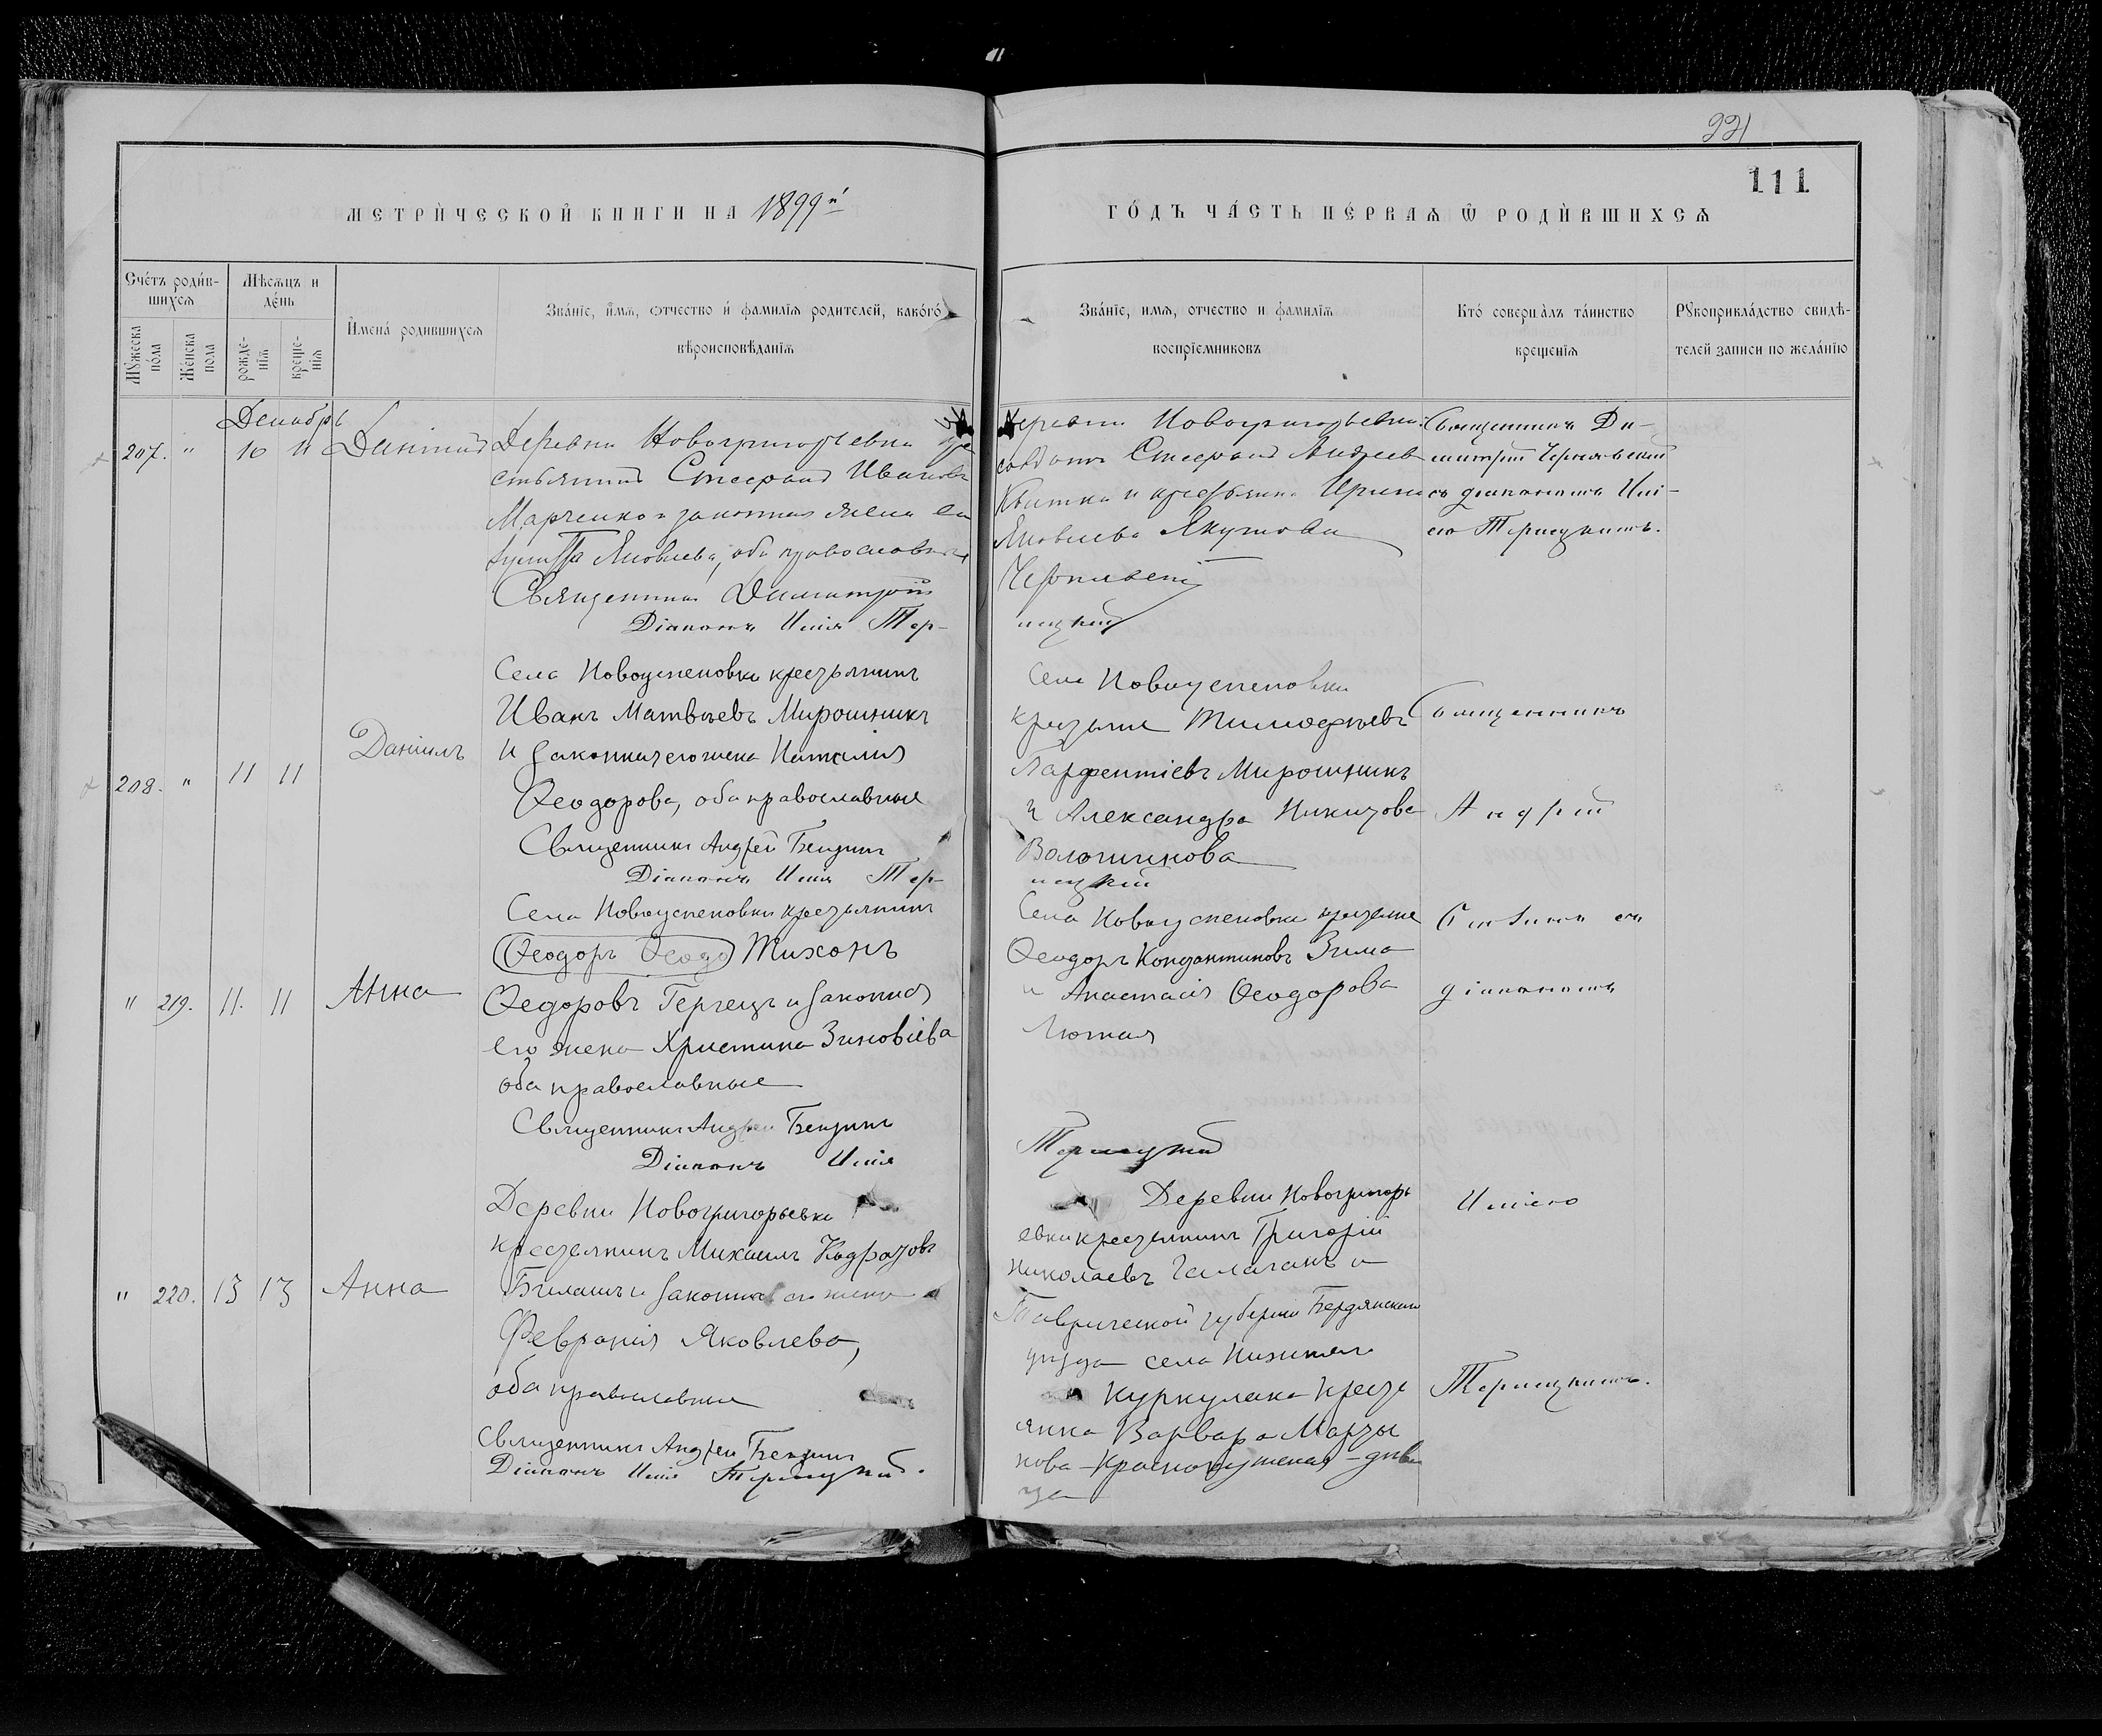 221
111
МЕТРИ́ЧЕСКОЙ КНИГИ НА 1899й
ГО́ДЪ ЧА́СТЬ ПЕ́РВАѦ Ѿ РОДИ́ВШИХСѦ
Сче́тъ роди́в-
шихсѧ
Мꙋ́жеска
по́ла
Же́нска
пола
Мѣсѧцъ и
де́нь
рожде-
нїѧ
креще-
нїѧ
И҆мена́ родившихсѧ
Зва́нїе, и҆́мѧ, ѻтчество и҆ фамилїѧ родителей, како́гѡ
вѣроисповѣданїѧ
Зва́нїе, имѧ, отчество и фамилїѧ
воспрїемниковъ
Кто́ соверша́лъ та́инство
крещенїѧ
Рꙋкоприкла́дство свидѣ-
телей записи по жела́нїю
Декабрь
207. " 10 11
Деревни Новогригорьевки кре
стьянинъ Стефанъ Ивановъ
Марченко и законная жена его
Яковлева, оба православные
Священникъ Димитрій
Діаконъ Илія Тер-
Деревни Новогригорьевки
солдатъ Стефанъ Андреевъ
Квитка и крестьянка Ирина
Яковлева Якутова
Чернявскій
ницкій
Священникъ Ди-
митрій Чернявскій
съ діакономъ Илі-
ею Терницкимъ.
208. " 11 11 Даніилъ
Села Новоуспеновки крестьянинъ
Иванъ Матвѣевъ Мирошникъ
и законная его жена Наталія
Ѳеодорова, оба православные
Священникъ Андрей Бензинъ
Діаконъ Илія Тер-
Села Новоуспеновки
крестьяне Тимофѣевъ
Парфентіевъ Мирошникъ
и Александра Никитова
Волошинова
ницкій
Священникъ
Андрей
" 219. 11. 11 Анна
Села Новоуспеновки крестьянинъ
Ѳеодоръ Ѳеодо Тихонъ
Ѳедоровъ Герчецъ и законная
его жена Христина Зиновіева
оба православные
Священникъ Андрей Бензинъ
Діаконъ Илія
Села Новоуспеновки крестьяне
Ѳеодоръ Константиновъ Зима
и Анастасія Ѳеодорова
Лютая
Терницкій
діакономъ
" 220. 13 13 Анна
Деревни Новогригорьевки
крестьянинъ Михаилъ Кодратовъ
Билашъ и законная его жена
Февронія Яковлева,
оба православные
Священникъ Андрей Бензинъ
Діаконъ Илія Терницкій.
Деревни Новогригорь
евки крестьянинъ Григорій
Николаевъ Галаганъ и
Таврической губерніи Бердянскаго
уѣзда села Нижняго
Куркулака кресть
янка Варвара Марты
нова Краснокутская – дѣви
ца
Иліею
Терницкимъ.